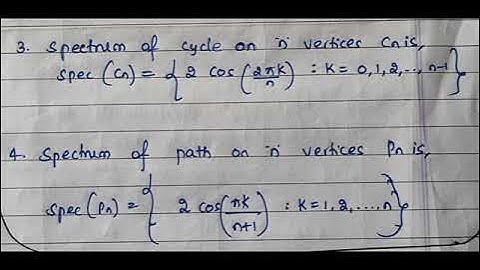 3. Spectrum of cycle on 'n' vertices Cn is,
Spec (Cn) = { 2 cos (2πk/n) : k = 0, 1, 2, .., n-1 }
4. Spectrum of path on 'n' vertices Pn is,
Spec (Pn) = { 2 cos (πk/n+1) : k = 1, 2, ...., n }